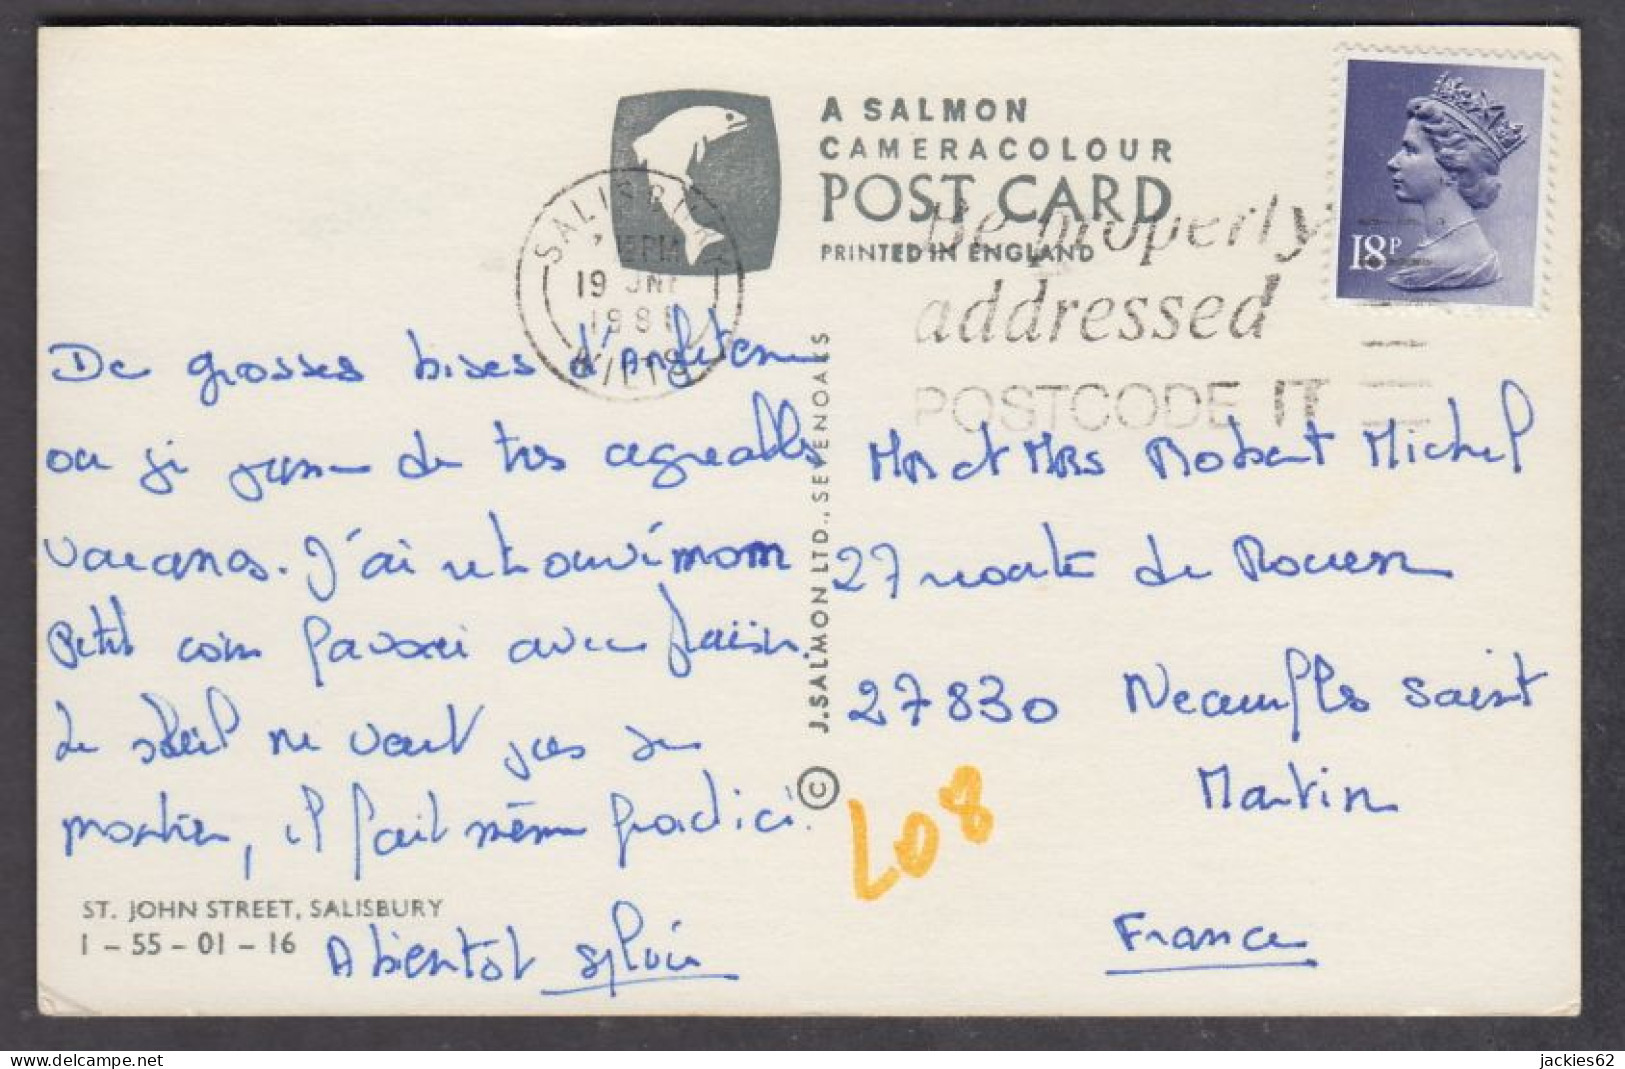 A SALMON
CAMERACOLOUR
POST CARD
PRINTED IN ENGLAND
SALISBURY
PM
19 JNE
1981
WILTS
Be properly
addressed
POSTCODE IT
18P
De grosses bises d'Angleterre
ou je passe de tres agreables
vacances. J'ai retrouvé mon
Petit coin favori avec plaisir.
Le soleil ne veut pas se
montrer, il fait même froid ici.
A bientot Sylvie
ST. JOHN STREET, SALISBURY
1 – 55 – 01 – 16
J. SALMON LTD., SEVENOAKS
©
MR et MRS Robert Michel
27 route de Rouen
27830 Neaufles Saint
Martin
France
L08
delcampe.net
jackies62